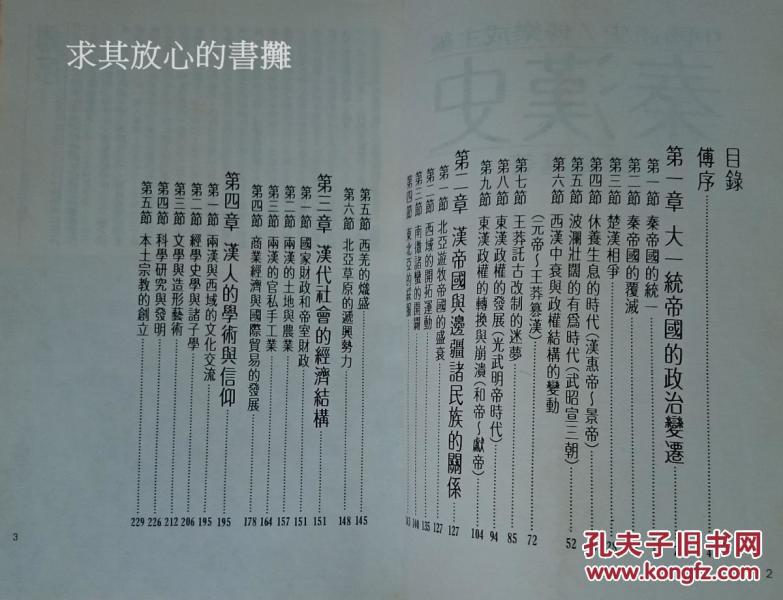 求其放心的書攤
秦漢史
目錄
傅序
第一章 大一統帝國的政治變遷
第一節 秦帝國的統一
第二節 秦帝國的覆滅
第三節 楚漢相爭
第四節 休養生息的時代(漢惠帝~景帝)
第五節 波瀾壯闊的有爲時代(武昭宣三朝) 52
第六節 西漢中衰與政權結構的變動
(元帝~王莽篡漢) 72
第七節 王莽託古改制的迷夢 85
第八節 東漢政權的發展(光武明帝時代) 94
第九節 東漢政權的轉換與崩潰(和帝~獻帝) 104
第二章 漢帝國與邊疆諸民族的關係 127
第一節 北亞遊牧帝國的盛衰 127
第二節 西域的開拓運動 135
第三節 南疆諸蠻的開闢 140
第四節 東北亞的
第五節 西羌的熾盛 145
第六節 北亞草原的遞興勢力 148
第三章 漢代社會的經濟結構 151
第一節 國家財政和帝室財政 151
第二節 兩漢的土地與農業 157
第三節 兩漢的官私手工業 164
第四節 商業經濟與國際貿易的發展 178
第四章 漢人的學術與信仰 195
第一節 兩漢與西域的文化交流 195
第二節 經學史學與諸子學 206
第三節 文學與造形藝術 212
第四節 科學研究與發明 226
第五節 本土宗教的創立 229
2
3
孔夫子旧书网
www.kongfz.com